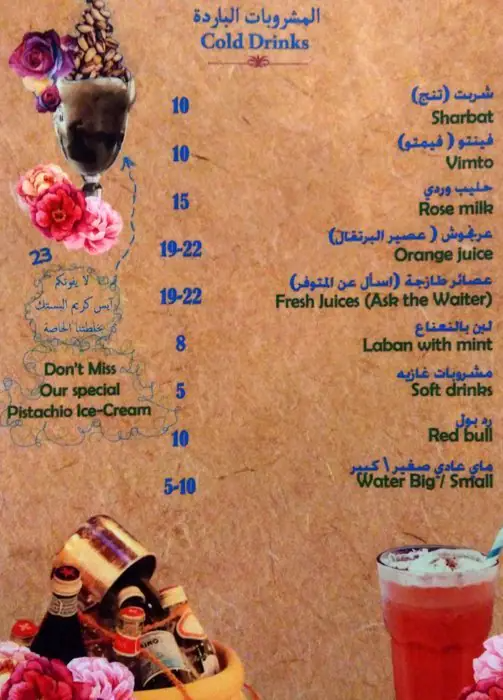 المشروبات الباردة
Cold Drinks
شربت (تنج)
10 Sharbat
فينتو ( فيمتو)
10 Vimto
حليب وردي
15 Rose milk
عرنجوش ( عصير البرتقال)
19-22 Orange juice
عصائر طازجة (اسأل عن المتوفر)
19-22 Fresh Juices (Ask the Waiter)
لبن بالنعناع
8 Laban with mint
مشروبات غازيه
5 Soft drinks
رد بول
10 Red bull
ماي عادي صغير \ كبير
5-10 Water Big / Small
23
لا يفوتكم
آيس كريم الفستك
بخلطتنا الخاصة
Don't Miss
Our special
Pistachio Ice-Cream